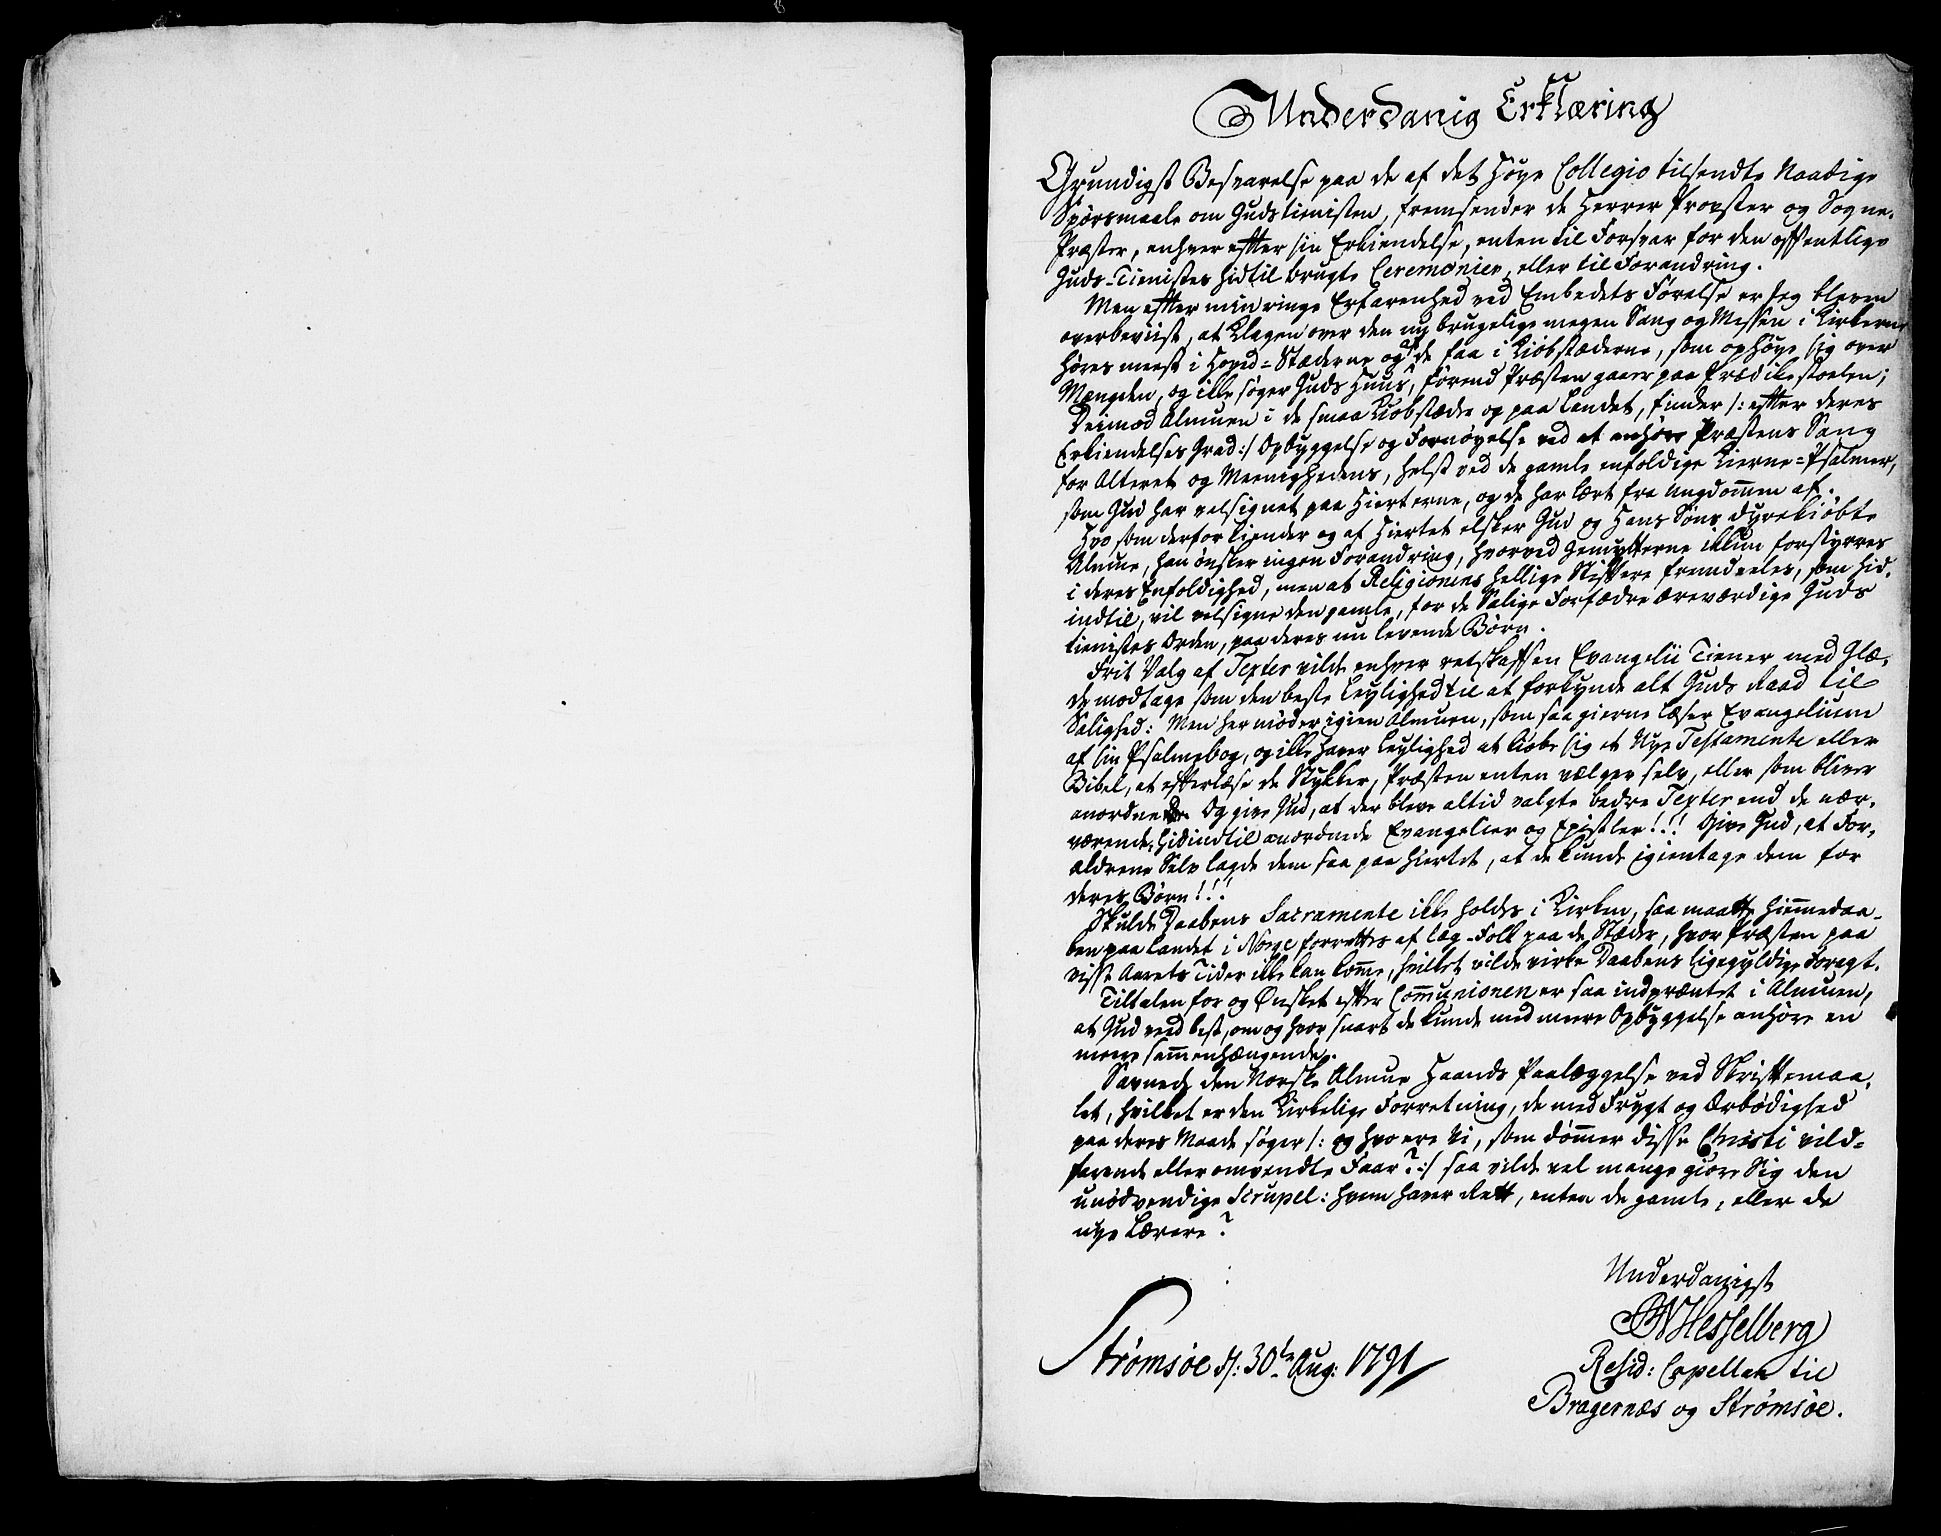 Underdanig Erklæring
Grundigst Besvarelse paa de af det Høye Collegio tilsendte Naadige
Spørsmaale om Gudstienisten, fremsender de Herrer Provster og Sogne-
Præster, enhver efter sin Erkiendelse, enten til Forsvar for den offentlige
Guds-Tienistes hidtil brugte Ceremonier, eller til Forandring.
Men efter min ringe Erfarenhed ved Embedets Førelse er jeg bleven
overbeviist, at Klagen over den nu brugelige megen Sang og Messen i Kirkerne
høres meest i Hoved-Stæderne og af de faa i Kiøbstæderne, som ophøye sig over
Mængden, og ikke søger Guds Huus, førend Præsten gaaer paa Prædikestoelen;
Derimod Almuen i de smaa Kiøbstæder og paa Landet, finder /: efter deres
Erkiendelses Grad:/ Opbyggelse og Fornøyelse ved at anhøre Præstens Sang
for Alteret og Meenighedens, helst ved de gamle enfoldige Kierne-Psalmer,
som Gud har velsignet paa Hierterne, og de har lært fra Ungdommen af.
Hvo som derfor kiender og af Hiertet elsker Gud og Hans Søns dyrekiøbte
Almue, han ønsker ingen Forandring, hvorved Gemytterne ikkun forstyrres
i deres Enfoldighed, men at Religionens hellige Stiftere fremdeeles, som hid-
indtil, vil velsigne den gamle, for de Salige Forfædre ærværdige Guds
tienistes Orden, paa deres nu levende Børn.
Frit Valg af Texter vilde enhver retskaffen Evangelii Tiener med Glæ-
de modtage som den beste Leylighed til at forkynde alt Guds Raad til
Salighed: Men her møder igien Almuen, som saa gierne læser Evangelium
af sin Psalmebog, og ikke haver Leylighed at kiøbe sig et Nye Testamente eller
Bibel, at efterlæse de Stykker, Præsten enten vælger selv, eller som bliver
anordnede. Og give Gud, at der bleve altid valgte bedre Texter end de nær-
værende, hidindtil anordnede Evangelier og Epistler!!! Give Gud, at For-
ældrene Selv lagde dem saa paa Hiertet, at de kunde igientage dem for
deres Børn!!!
Skulde Daabens Sacramente ikke holdes i Kirken, saa maatte Hiemmedaa-
ben paa Landet i Norge forrettes af Læg-Folk paa de Stæder, hvor Præsten paa
visse Aarets Tider ikke kan komme, hvilket vilde virke Daabens ligegyldige Foragt.
Tiltalen for og Ønsket efter Communionen er saa indprentet i Almuen,
at Gud veed best, om og hvor snart de kunde med meere Opbyggelse anhøre en
meere sammenhængende.
Savnede den Norske Almue Haands Paalæggelse ved Skriftemaa-
let, hvilket er den Kirkelige Forretning, de med Frygt og Ærbødighed
paa deres Maade søger /: og hvo ere Vi, som dømmer disse Christi vild-
farende eller omvendte Faar? :/ saa vilde vel mange giøre Sig den
unødvendige Scrupel: hvem haver Rett, enten de gamle, eller de
nye Lærere?
Underdanigst
Hesselberg
Strømsøe d: 30te Aug: 1791
Resid: Capellan til
Bragernæs og Strømsøe.